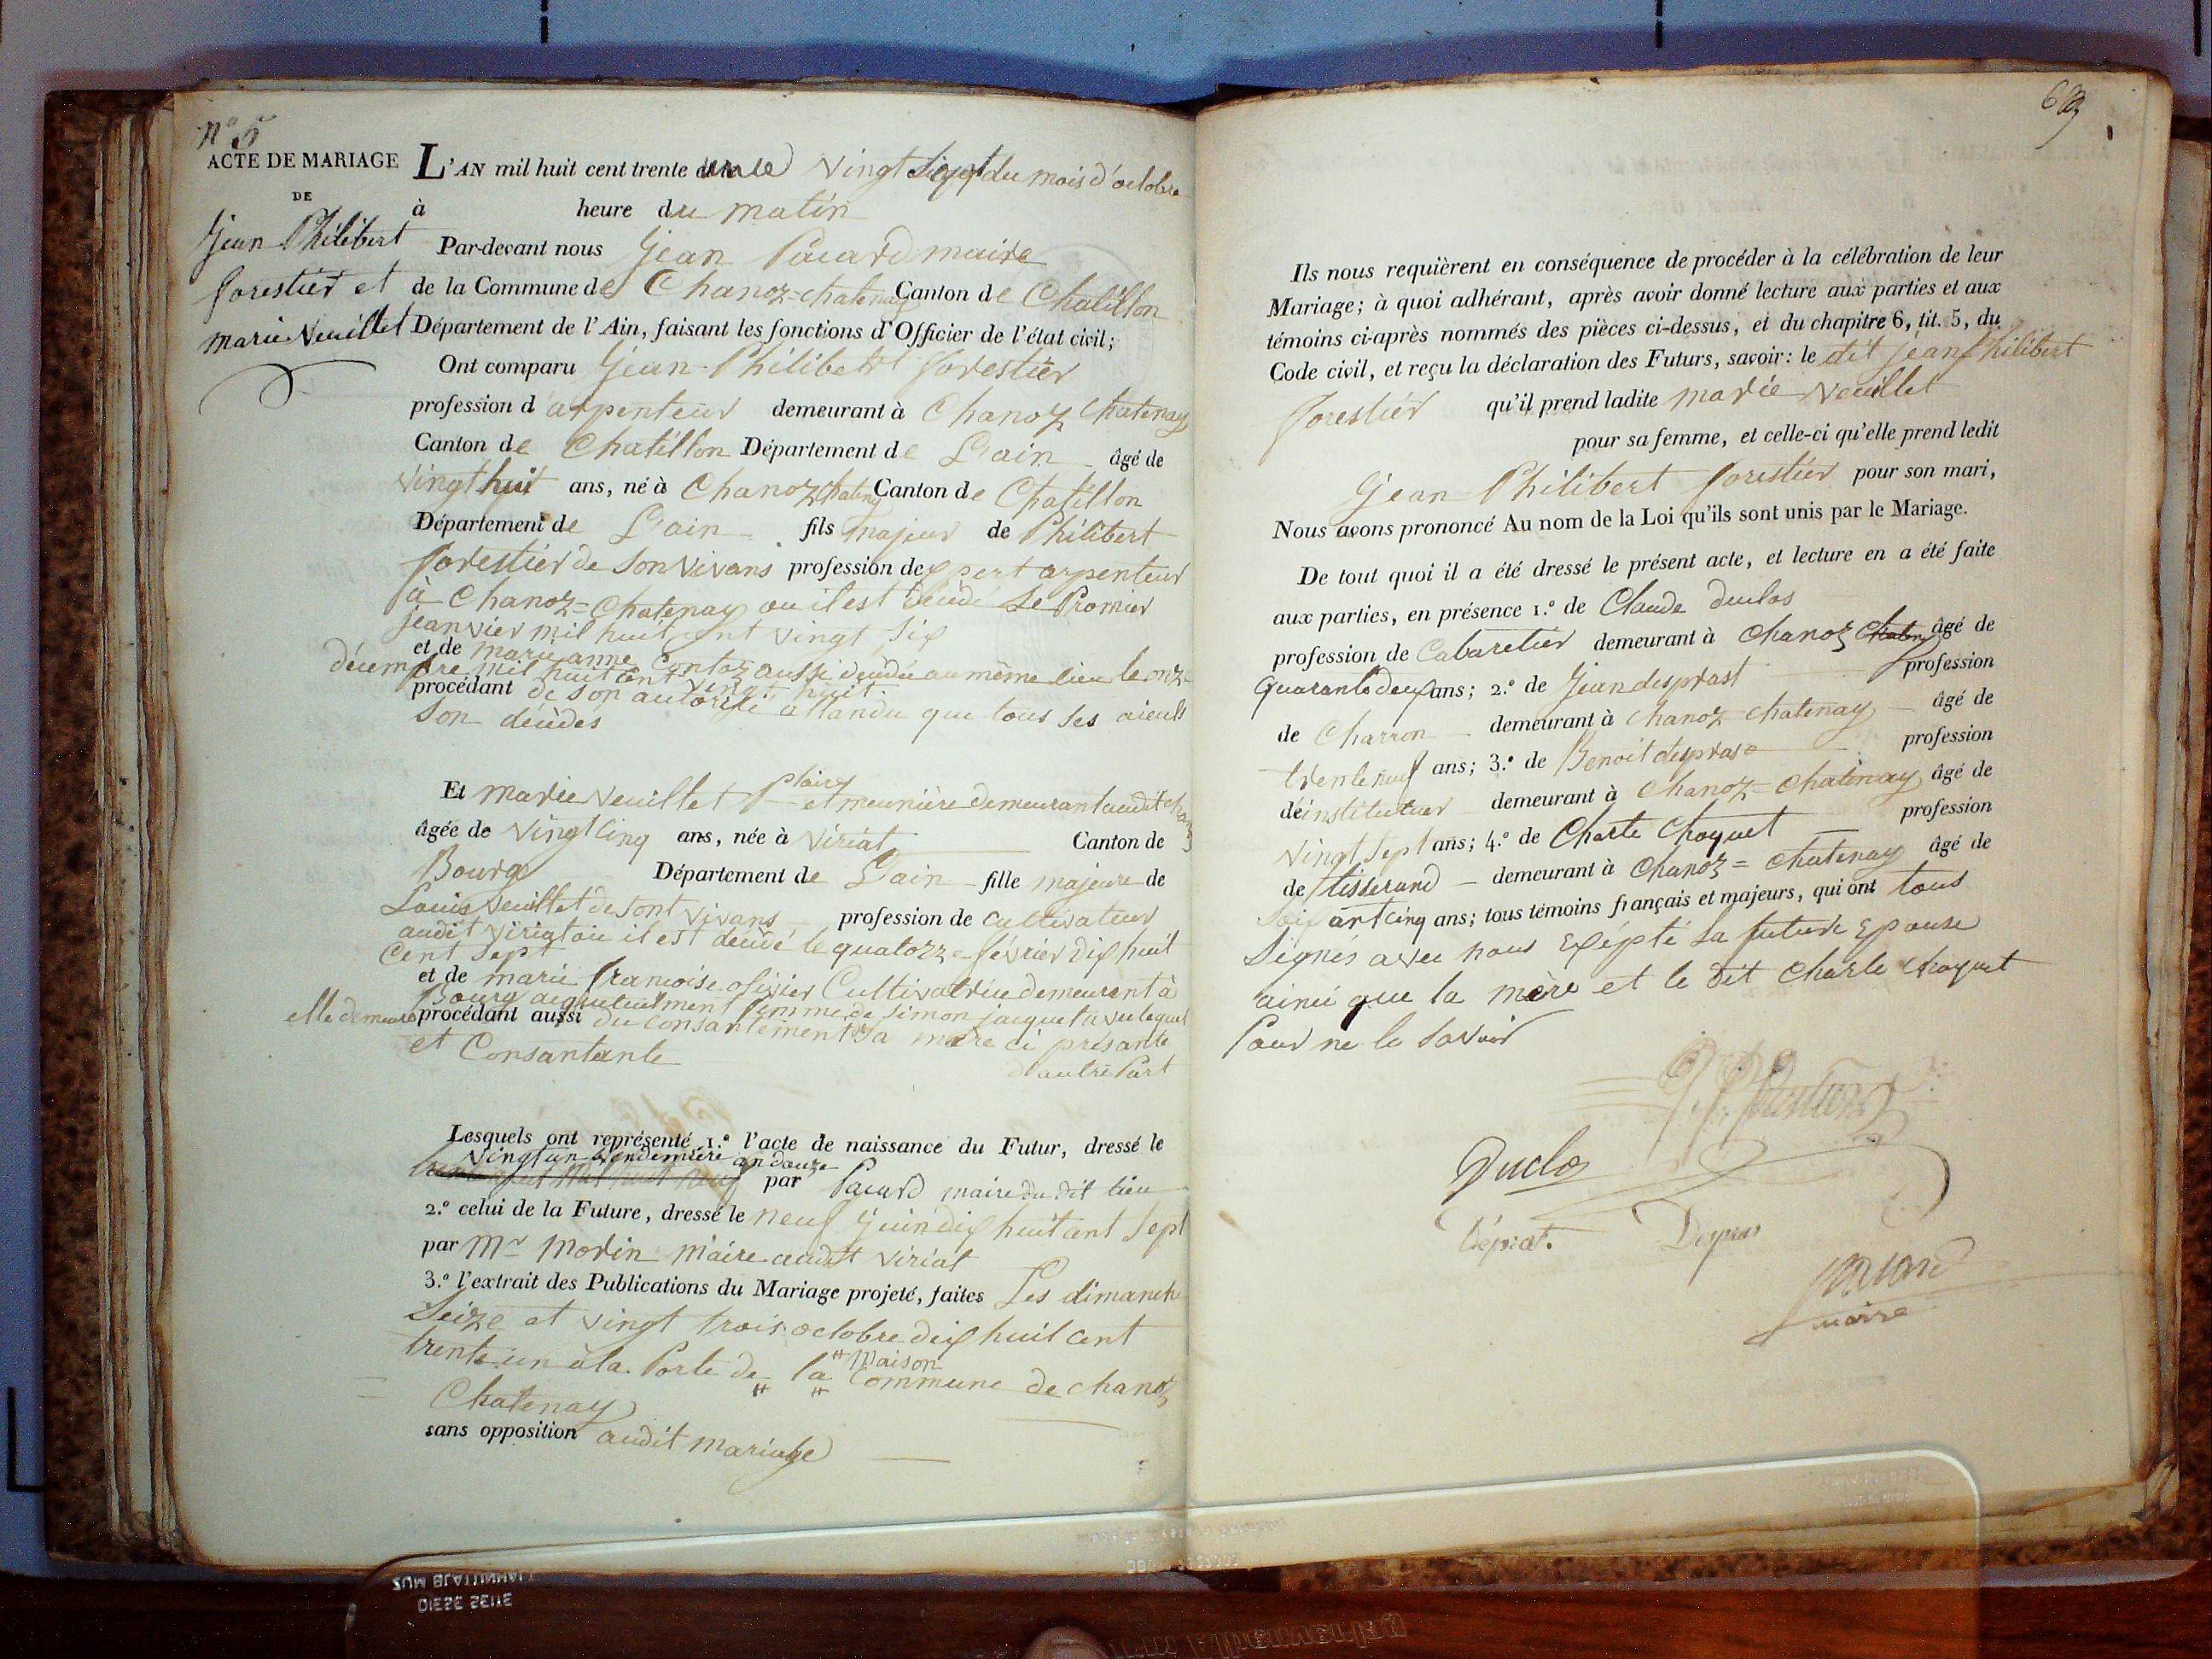 n° 5
ACTE DE MARIAGE
DE
Jean Philibert
forestier et
marie Veuillet
L'AN mil huit cent trente un le vingt sept du mois d'octobre
à heure du matin
Par-devant nous Jean Pacard maire
de la Commune de Chanoz=chatenay Canton de Chatillon
Département de l'Ain, faisant les fonctions d'Officier de l'état civil;
Ont comparu Jean-Philibert forestier
profession d'arpenteur demeurant à Chanoz Chatenay
Canton de Chatillon Département de L'ain âgé de
vingt huit ans, né à Chanoz chatenay Canton de Chatillon
Département de L'ain fils majeur de Philibert
forestier de son vivans profession dexpert arpenteur
à Chanoz=Chatenay ou il est décédé Le Promier
jeanvier mil huit cent vingt six
et de marie anne Contoz aussi décédée au même lieu le onze
décembre mil huit cent vingt huit
procédant de son autorité attandu que tous ses aieuls
son décédés
Et marie veuillet et meunière demeurant audit chanoz
âgée de vingt Cinq ans, née à viriat Canton de
Bourg Département de L'ain fille majeure de
Louis veuillet de sont vivans profession de cultivateur
audit viriat ou il est décédé le quatorze février dix huit
Cent sept
et de marie francoise olivier Cultivatrice demeurent à
Bourg actuelment femme de Simon jacquet avec lequel
elle demeure procédant aussi du consantement de sa mère ci présante
et Consantante
d'autre Part
Lesquels ont représenté 1.° l'acte de naissance du Futur, dressé le
vingt un vendemiere an douze
par Pacard maire du dit lieu
2.° celui de la Future, dressé le neuf Juin dix huit cent sept
par Mr Morin Maire audit viriat
3.° l'extrait des Publications du Mariage projeté, faites Les dimanche
seize et vingt trois octobre dix huit cent
trente un à la Porte de la maison Commune de chanoz
Chatenay
sans opposition audit mariage
Ils nous requièrent en conséquence de procéder à la célébration de leur
Mariage; à quoi adhérant, après avoir donné lecture aux parties et aux
témoins ci-après nommés des pièces ci-dessus, et du chapitre 6, tit. 5, du
Code civil, et reçu la déclaration des Futurs, savoir: le dit jean philibert
forestier qu'il prend ladite marie veuillet
pour sa femme, et celle-ci qu'elle prend ledit
Jean Philibert forestier pour son mari,
Nous avons prononcé Au nom de la Loi qu'ils sont unis par le Mariage.
De tout quoi il a été dressé le présent acte, et lecture en a été faite
aux parties, en présence 1.° de Claude duclos
profession de Cabaretier demeurant à Chanoz Chateny âgé de
quarante deux ans; 2.° de Jean desprast profession
de Charron demeurant à chanoz chatenay âgé de
trente neuf ans; 3.° de Benoit desprase profession
deinstitutuer demeurant à Chanoz=Chatenay âgé de
vingt sept ans; 4.° de Charle Choquet profession
de tisserand demeurant à Chanoz=chatenay âgé de
soixant cinq ans; tous témoins français et majeurs, qui ont tous
signés avec nous Exépté la future Epouse
ainci que la mère et le dit Charle choquet
Pour ne le savoir
Duclos
Déprat.
Despras
pacard
maire